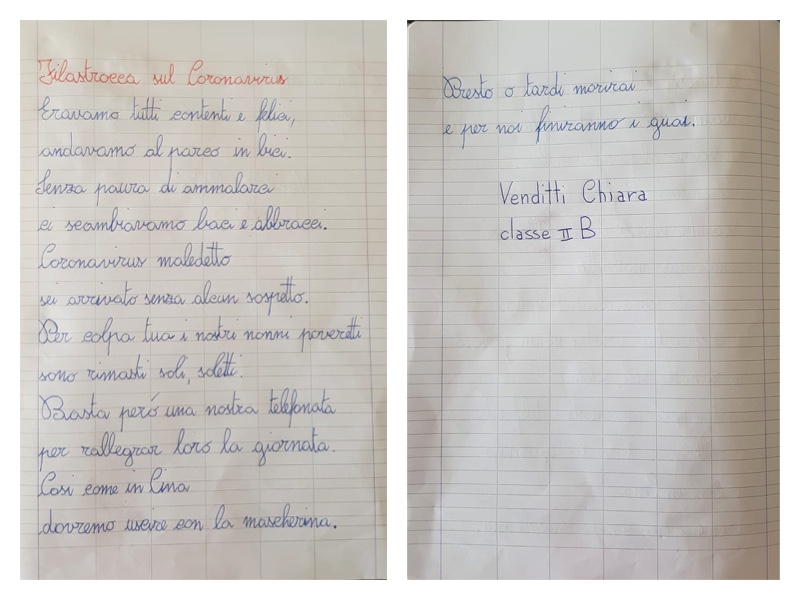 Filastrocca sul Coronavirus
Eravamo tutti contenti e felici,
andavamo al parco in bici.
Senza paura di ammalarci
ci scambiavamo baci e abbracci.
Coronavirus maledetto
sei arrivato senza alcun sospetto.
Per colpa tua i nostri nonni poveretti
sono rimasti soli, soletti.
Basta però una nostra telefonata
per rallegrar loro la giornata.
Così come in Cina
dovremo uscire con la mascherina.
Presto o tardi morirai
e per noi finiranno i guai.
Venditti Chiara
classe II B